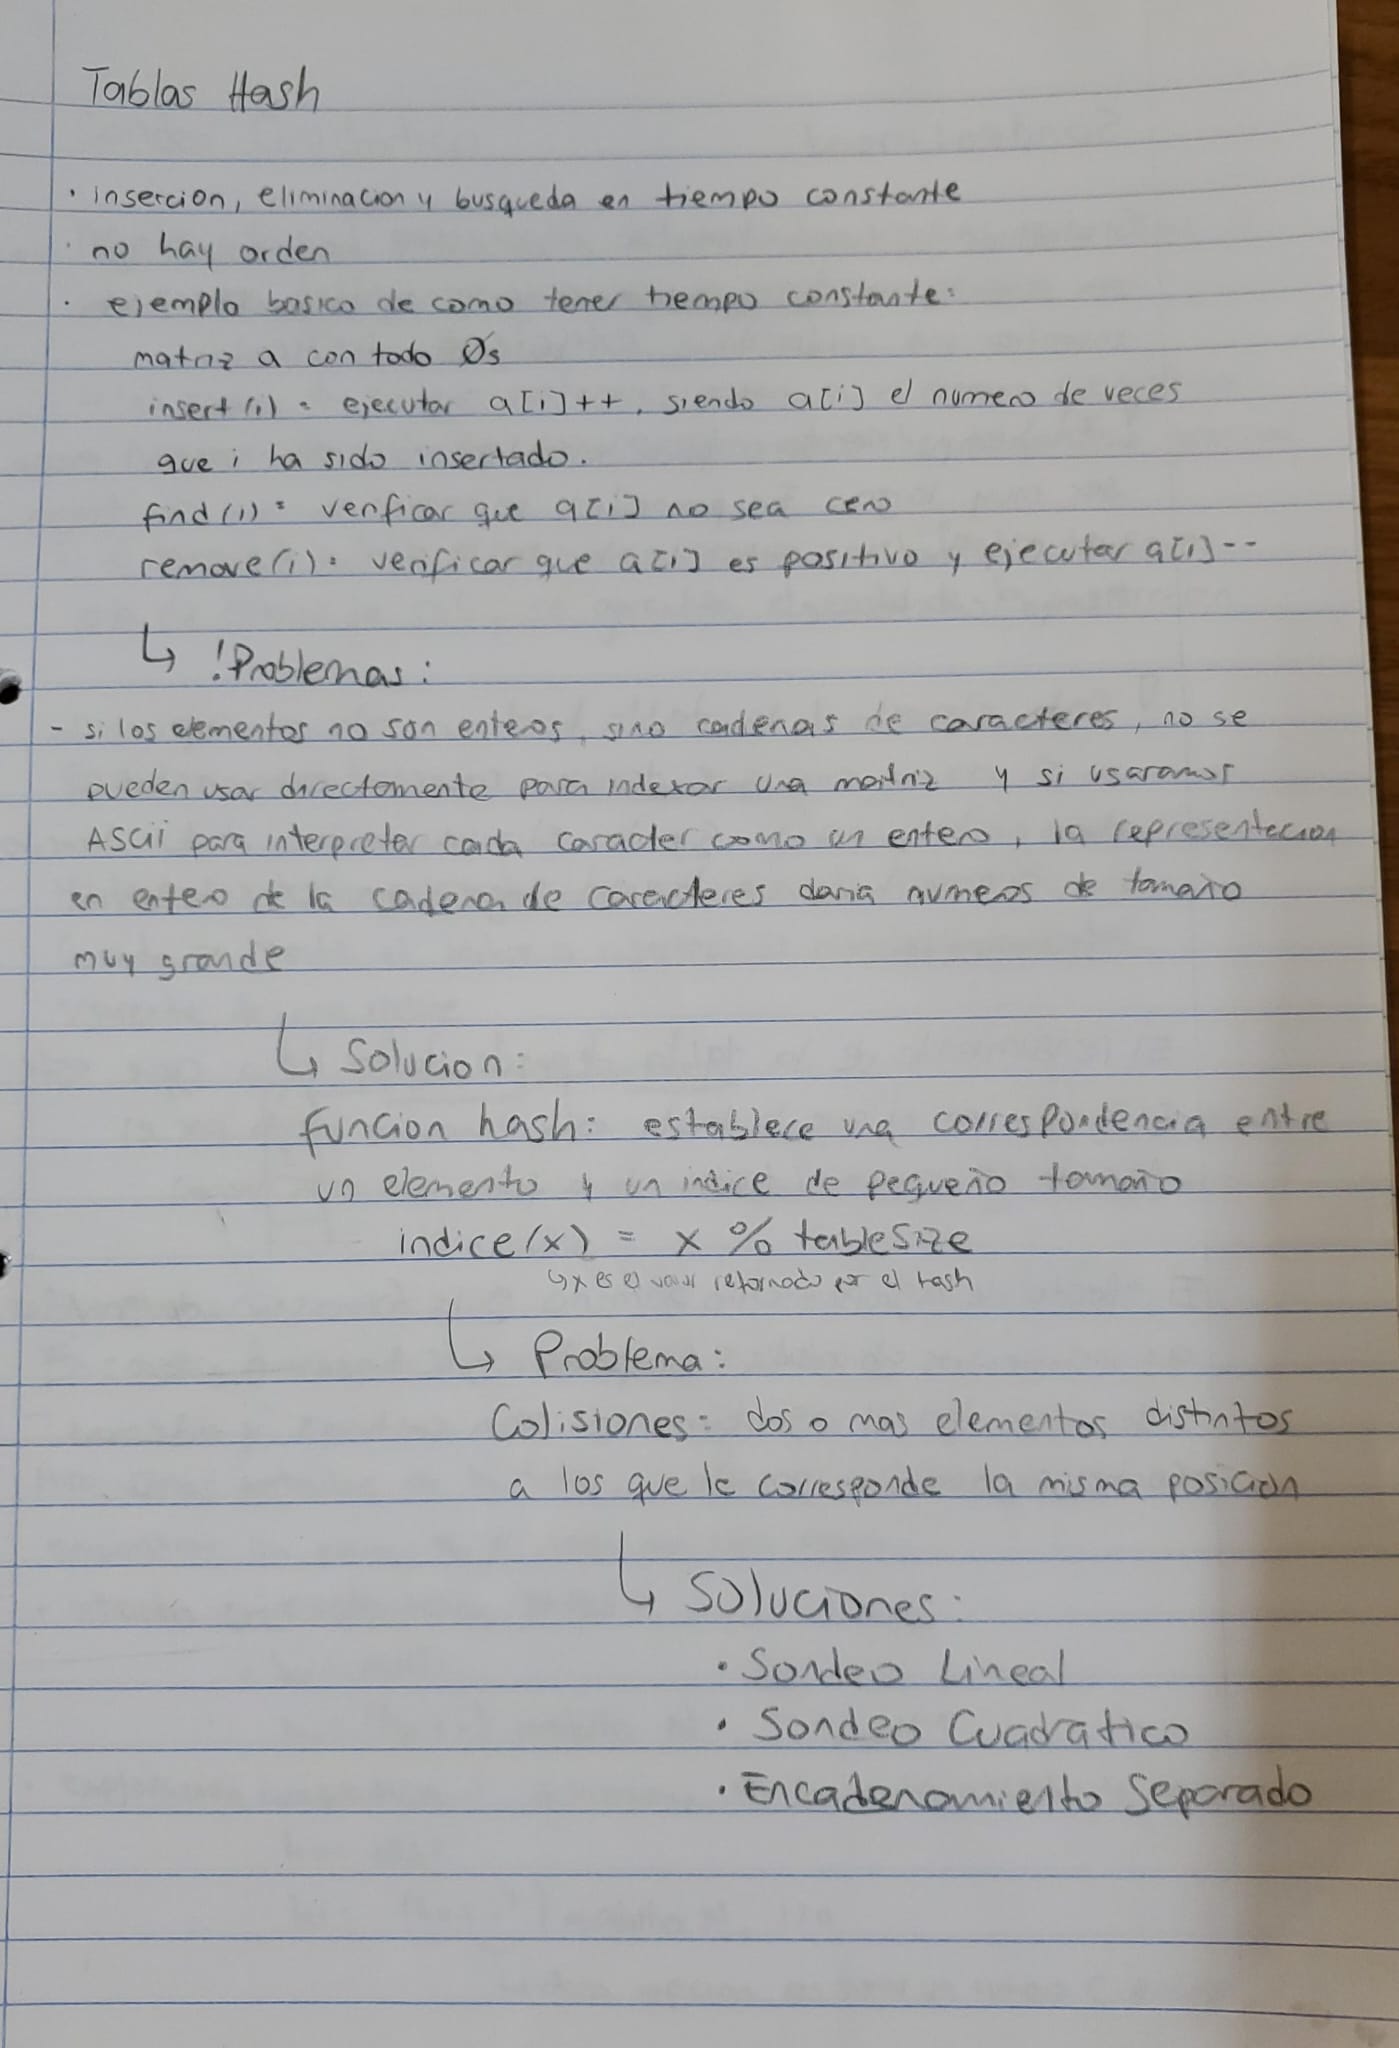 Tablas Hash
· insercion, eliminacion y busqueda en tiempo constante
· no hay orden
· ejemplo basico de como tener tiempo constante:
matriz a con todo 0's
insert(i) = ejecutar a[i]++, siendo a[i] el numero de veces
que i ha sido insertado.
find(i) = verificar que a[i] no sea cero
remove(i) = verificar que a[i] es positivo y ejecutar a[i]--
↳ !Problemas:
- si los elementos no son enteros, sino cadenas de caracteres, no se
pueden usar directamente para indexar una matriz y si usaramos
ASCii para interpreter cada caracter como un entero, la representacion
en entero de la cadena de caracteres daria numeros de tamaño
muy grande
↳ Solucion:
funcion hash: establece una correspondencia entre
un elemento y un indice de pequeño tamaño
indice(x) = x % tableSize
↳ x es el valor retornado por el hash
↳ Problema:
Colisiones: dos o mas elementos distintos
a los que le corresponde la misma posicion
↳ Soluciones:
· Sondeo Lineal
· Sondeo Cuadratico
· Encadenamiento Separado